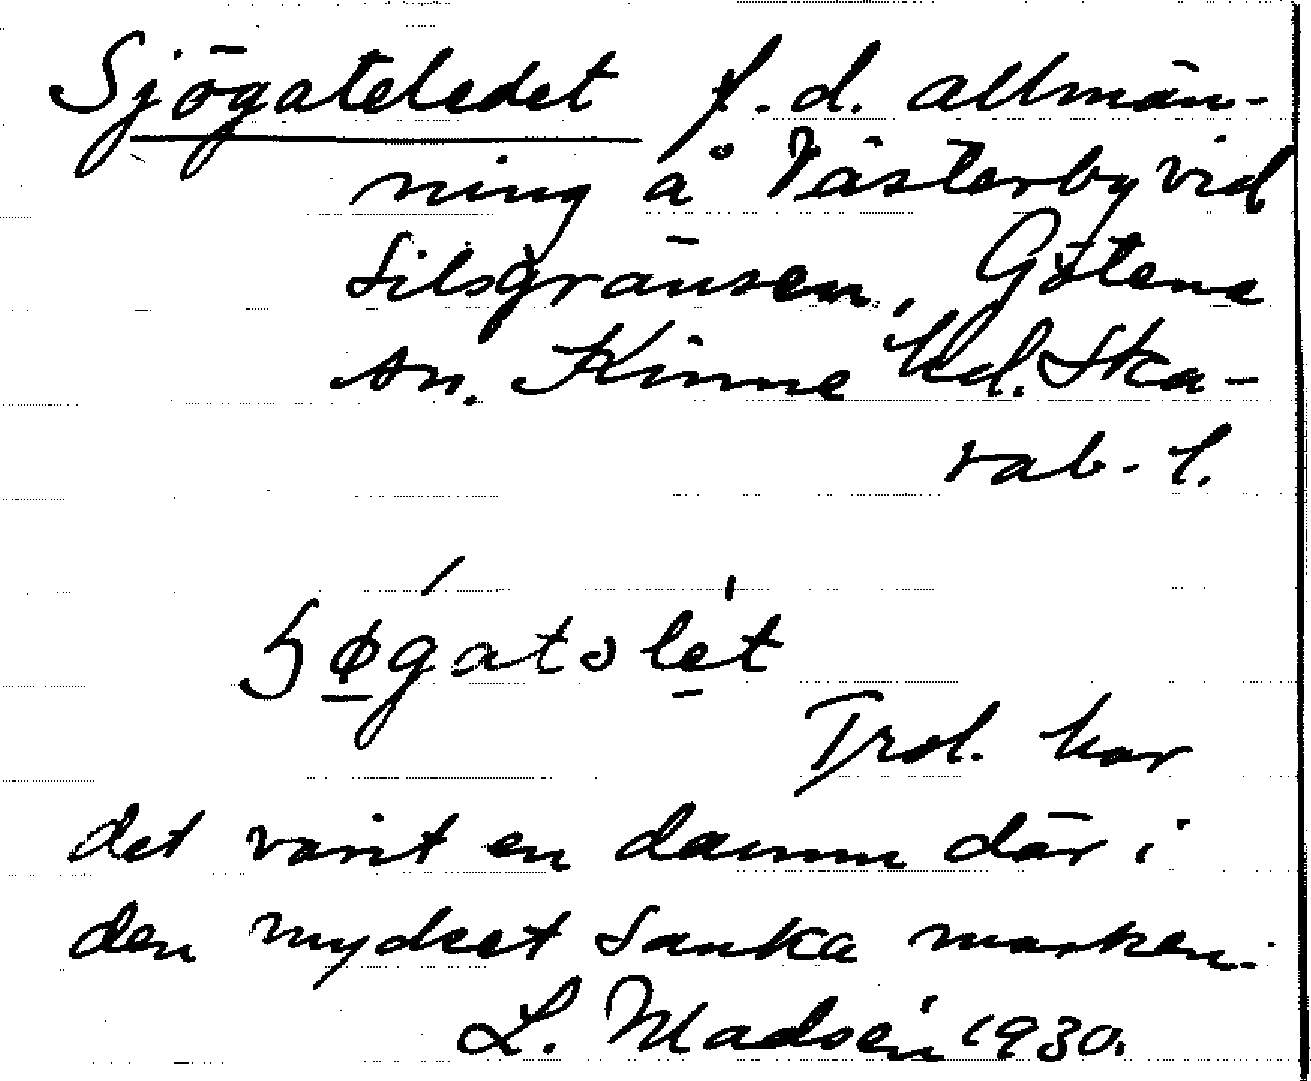 Sjögateledet f.d. allmän-
ning å Västerby vid
Silsgränsen, Götene
sn. Kinne hd. Ska-
rab. l.
Trol. har
det varit en damm där i
den mycket sanka marken.
L. Madsén 1930.